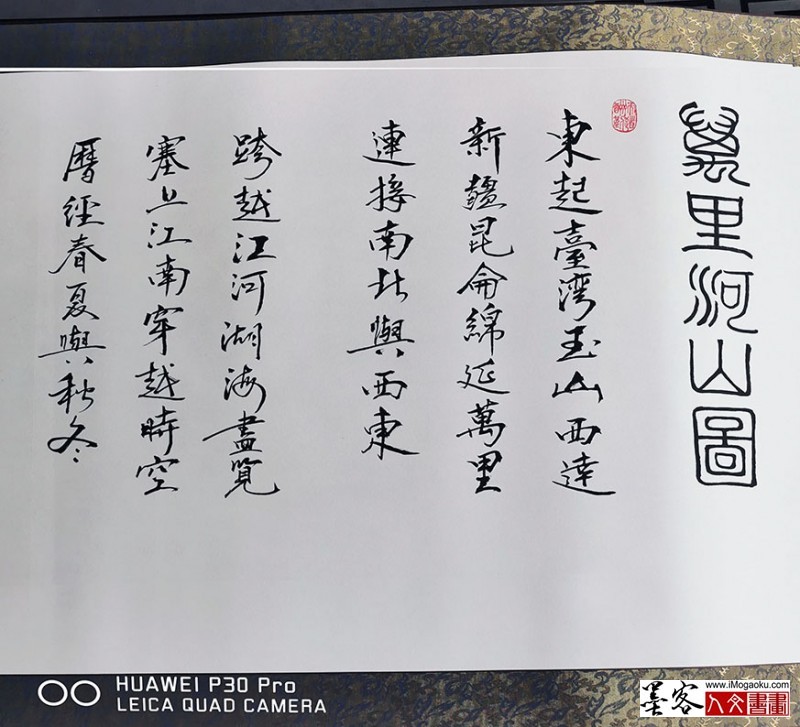 萬里河山圖
東起臺灣玉山西達
新疆昆侖綿延萬里
連接南北與西東
跨越江河湖海盡覽
塞上江南穿越時空
曆經春夏與秋冬
HUAWEI P30 Pro
LEICA QUAD CAMERA
www.iMogaoku.com
墨客
人文書畫